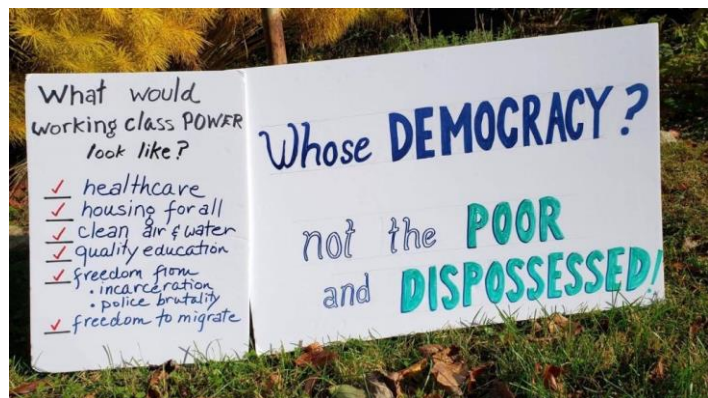 What would
working class POWER
look like?
✓ healthcare
✓ housing for all
✓ clean air & water
✓ quality education
✓ freedom from
• incarceration
• police brutality
✓ freedom to migrate
Whose DEMOCRACY?
not the POOR
and DISPOSSESSED!